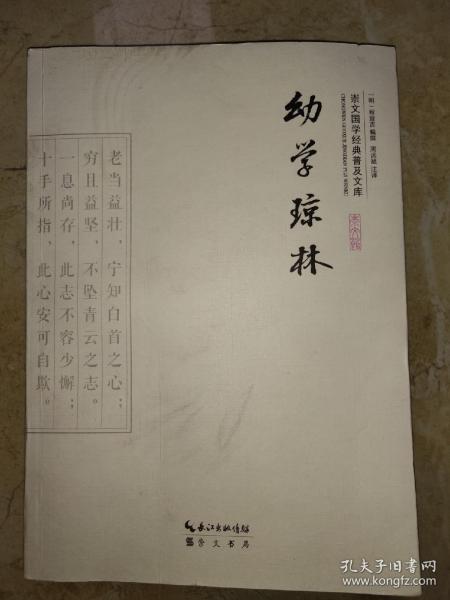 幼学琼林
崇文国学经典普及文库
[明] 程登吉 编撰
老当益壮，宁知白首之心；
穷且益坚，不坠青云之志。
一息尚存，此志不容少懈；
十手所指，此心安可自欺。
长江出版传媒
崇文书局
孔夫子旧书网
www.kongfz.com